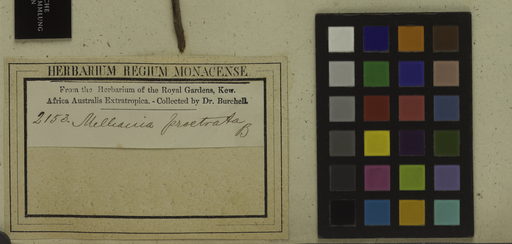 CHE
MMLUNG
EN
HERBARIUM REGIUM MONACENSE.
From the Herbarium of the Royal Gardens, Kew.
Africa Australis Extratropica. - Collected by Dr. Burchell.
2153. Melhania prostrata
B